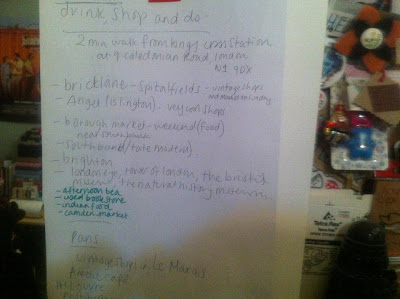 drink, shop and do
2 min walk from kings cross station
at 9 caledonian Road, london
N1 9DX
- bricklane - spitalfields - vintage shops
and
- Angel (islington) - vegan shops
- borough market - weekend (food)
near
- southbank/tate modern)
- brighton
- london eye, tower of london, the british
museum, the natural history museum
- afternoon tea
- used book store
- indian food
- camden market
Paris
vintage shops in le Marais
Amelie cafe
louvre
Tetra Pak